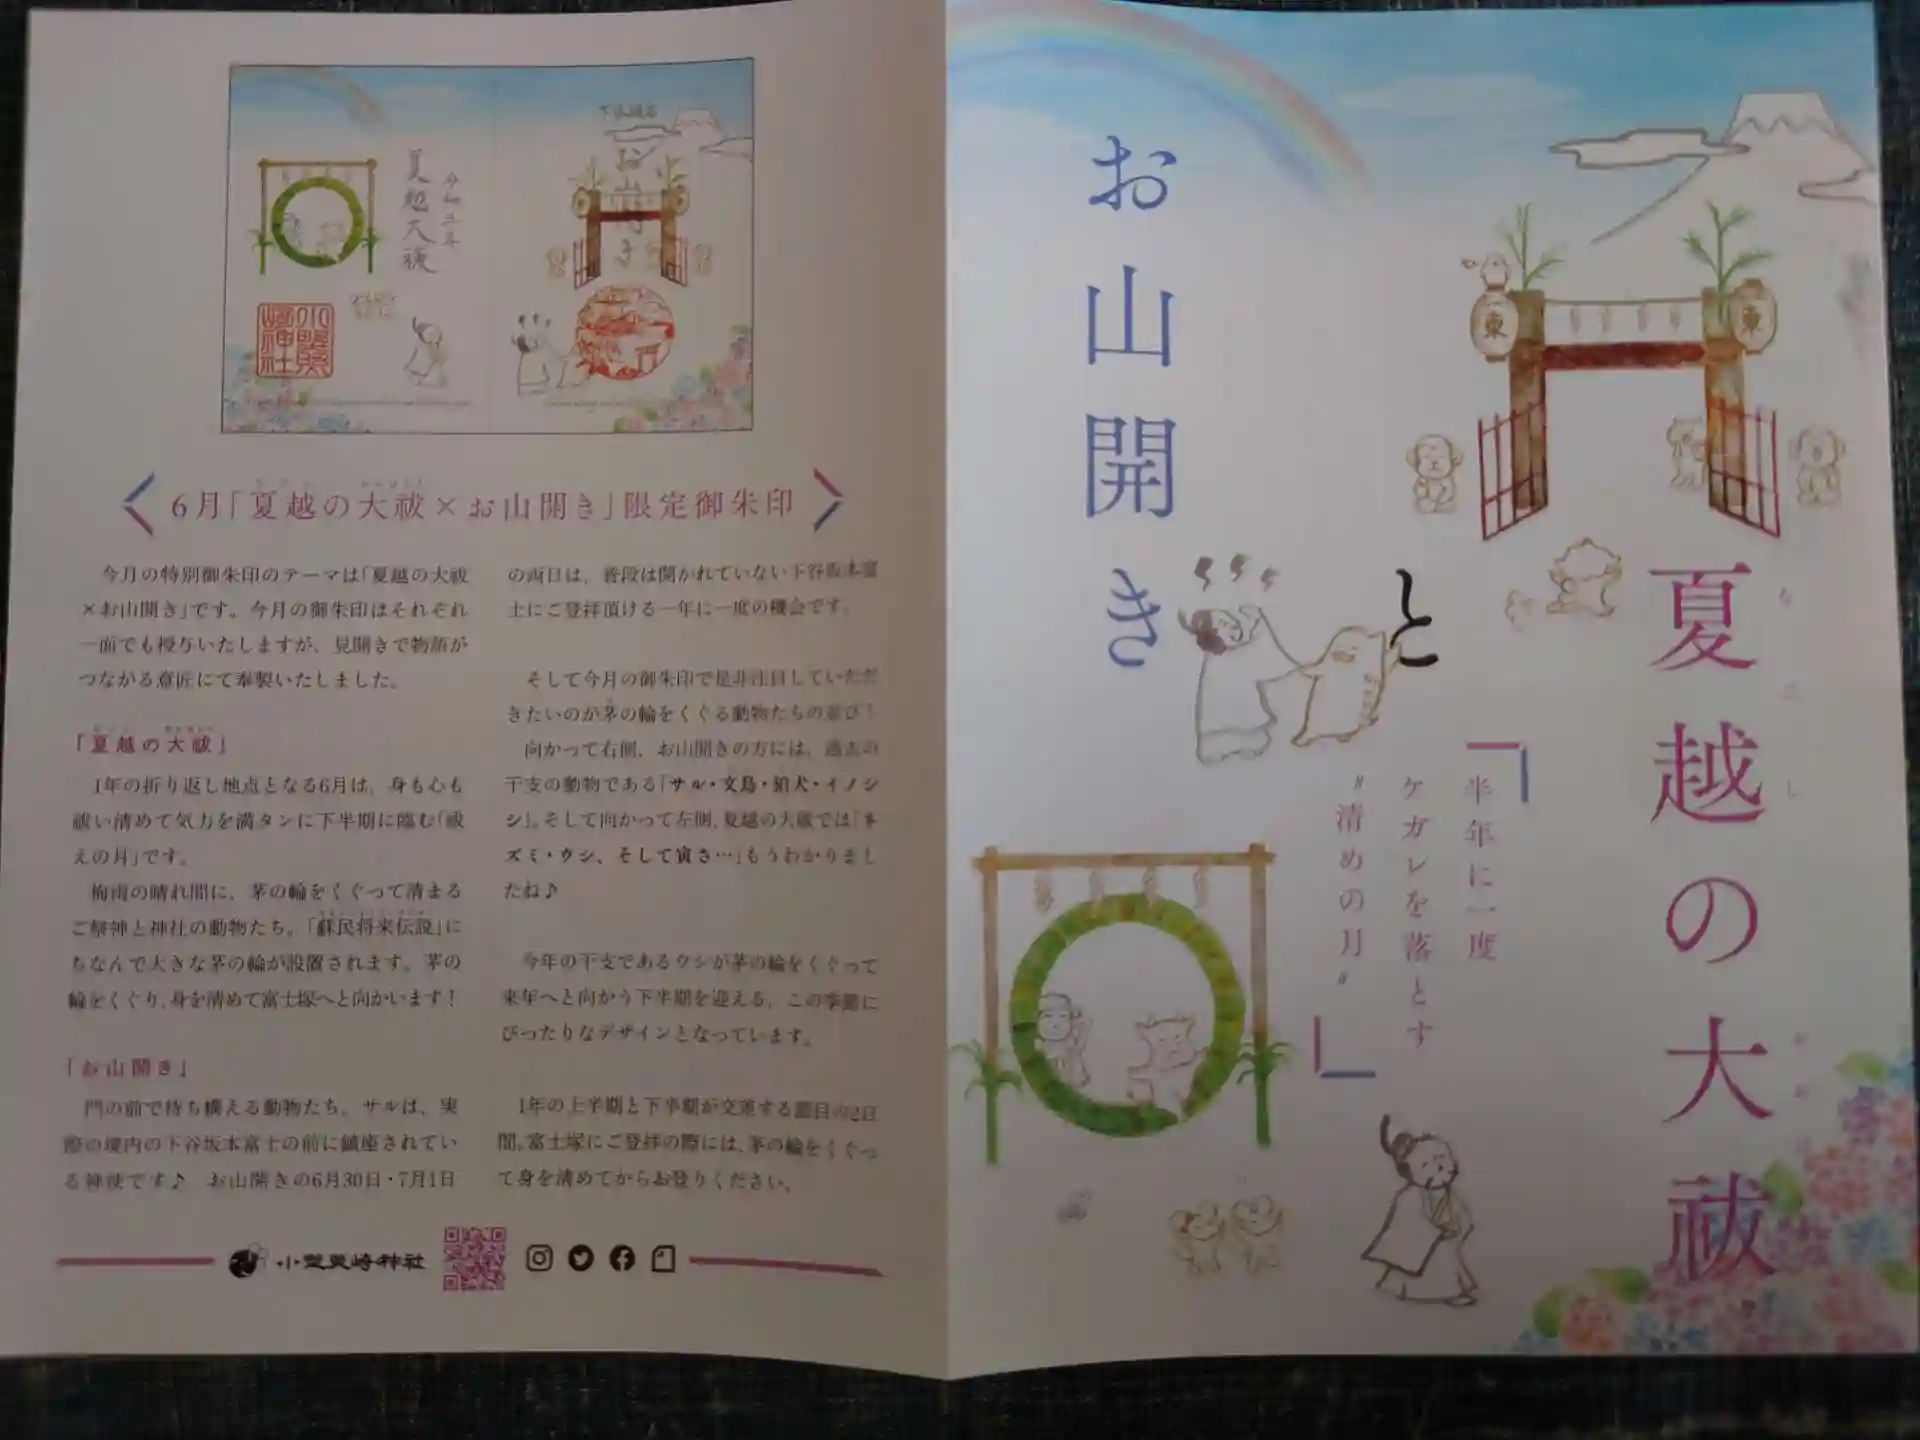 夏越の大祓
なごし
おおはらえ
と
お山開き
半年に一度
ケガレを落とす
〝清めの月〟
東
東
令和三年
夏越大祓
お山開き
小野照崎神社
6月「夏越の大祓×お山開き」限定御朱印
今月の特別御朱印のテーマは「夏越の大祓
×お山開き」です。今月の御朱印はそれぞれ
一面でも授与いたしますが、見開きで物語が
つながる意匠にて奉製いたしました。
「夏越の大祓」
1年の折り返し地点となる6月は、身も心も
祓い清めて気力を満タンに下半期に臨む「祓
えの月」です。
梅雨の晴れ間に、茅の輪をくぐって清まる
ご祭神と神社の動物たち。「蘇民将来伝説」に
ちなんで大きな茅の輪が設置されます。茅の
輪をくぐり、身を清めて富士塚へと向かいます!
「お山開き」
門の前で待ち構える動物たち。サルは、実
際の境内の下谷坂本富士の前に鎮座されてい
る神使です♪ お山開きの6月30日・7月1日
の両日は、普段は開かれていない下谷坂本富
士にご登拝頂ける一年に一度の機会です。
そして今月の御朱印で是非注目していただ
きたいのが茅の輪をくぐる動物たちの並び!
向かって右側、お山開きの方には、過去の
干支の動物である「サル・文鳥・狛犬・イノシ
シ」。そして向かって左側、夏越の大祓では「ネ
ズミ・ウシ、そして寅さ…」もうわかりまし
たね♪
今年の干支であるウシが茅の輪をくぐって
来年へと向かう下半期を迎える、この季節に
ぴったりなデザインとなっています。
1年の上半期と下半期が交差する節目の2日
間。富士塚にご登拝の際には、茅の輪をくぐっ
て身を清めてからお登りください。
小野照崎神社